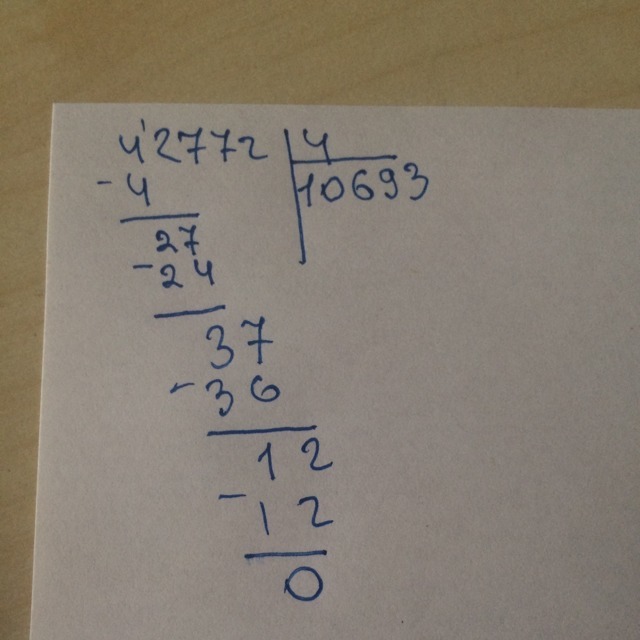 4'2772 | 4
- 4 | 10693
27
- 24
37
- 36
12
- 12
0